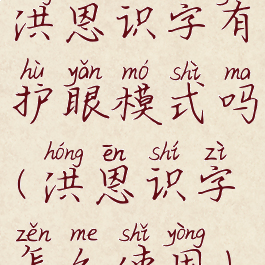 洪恩识字有
hù yǎn mó shì ma
护眼模式吗
hóng ēn shí zì
(洪恩识字
zěn me shǐ yòng
怎么使用)